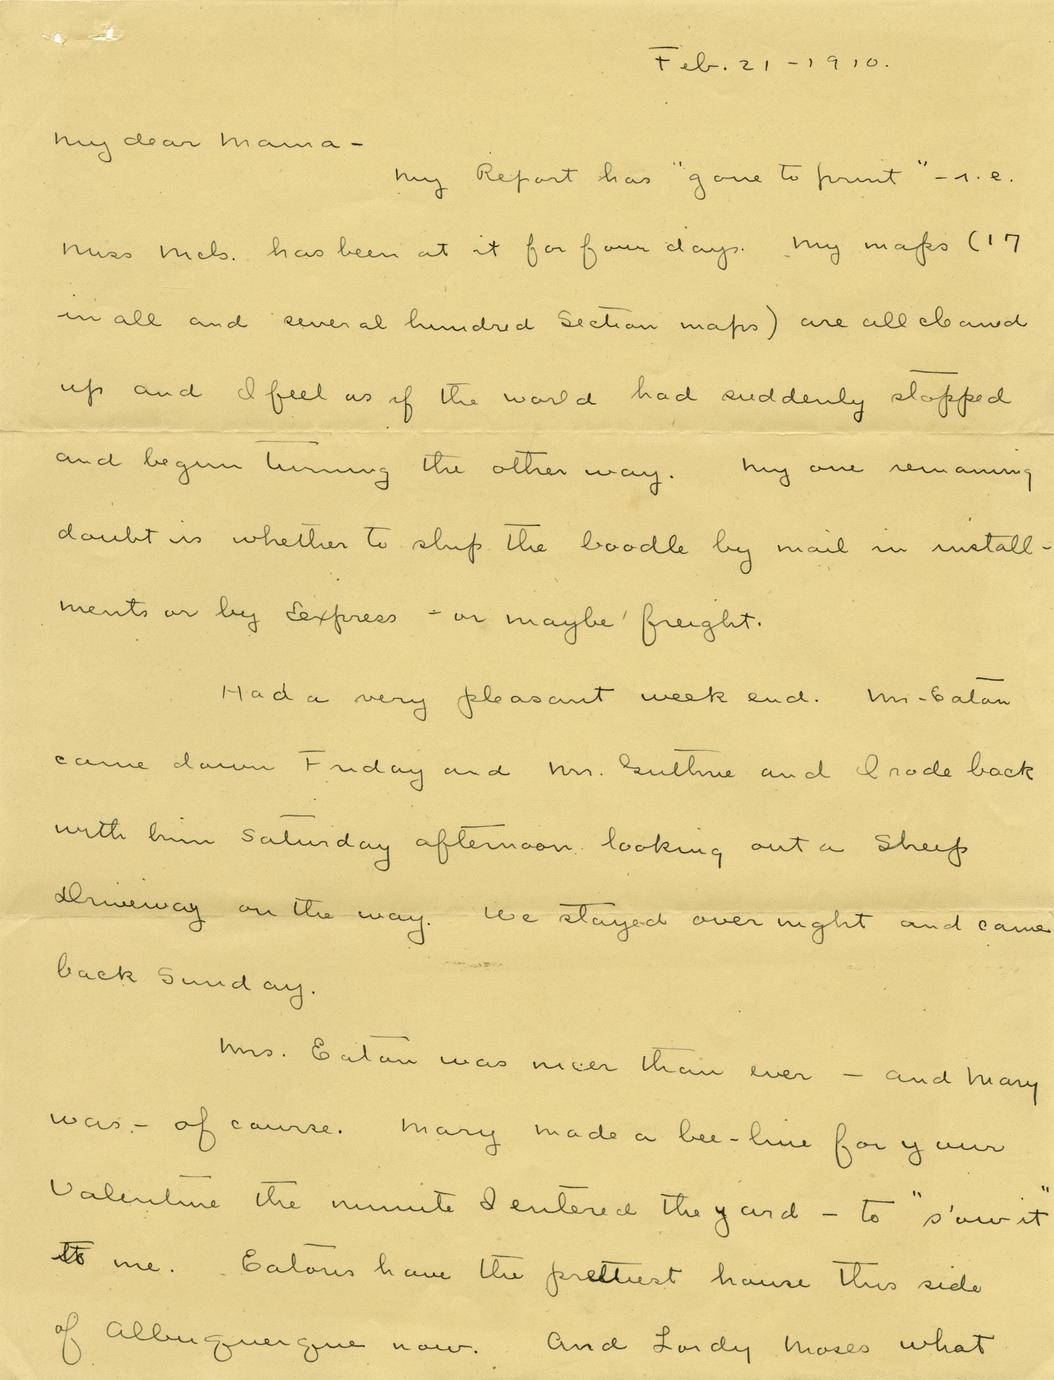 Feb. 21 - 1910.
My dear Mama -
My Report has "gone to print" - i.e.
Miss McL. has been at it for four days. My maps (17
in all and several hundred Section maps) are all cleaned
up and I feel as if the world had suddenly stopped
and begun turning the other way. My one remaining
doubt is whether to ship the boodle by mail in install-
ments or by Express - or maybe freight.
Had a very pleasant week end. Mr. Eaton
came down Friday and Mr. Guthrie and I rode back
with him Saturday afternoon looking out a Sheep
Driveway on the way. We stayed over night and came
back Sunday.
Mrs. Eaton was nicer than ever - and Mary
was - of course. Mary made a bee-line for your
Valentine the minute I entered the yard - to "s'ow it"
to me. Eatons have the prettiest house this side
of Albuquerque now. And Lordy Moses what